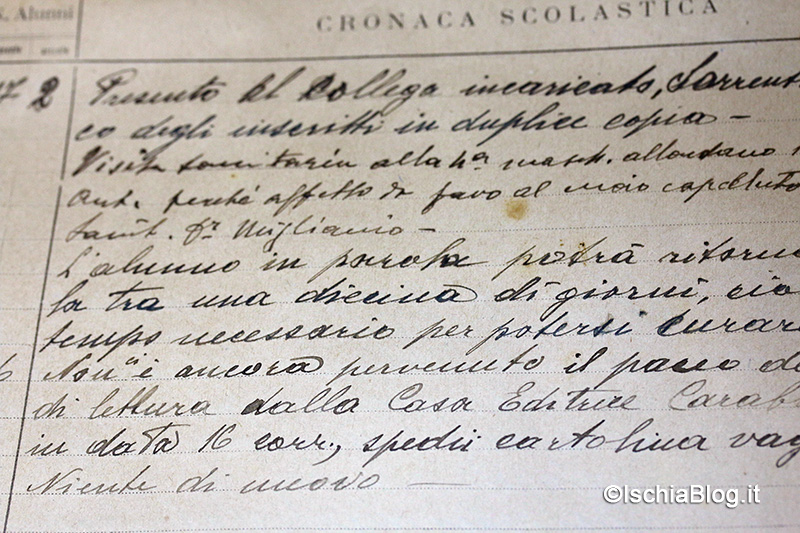 N. Alunni
CRONACA SCOLASTICA
2 Presento al Collega incaricato, Sorrent
co degli inscritti in duplice copia –
Visita sanitaria alla 4ª masch. allontano
Ant. perché affetto da favo al cuoio capelluto
Sanit. Dr Migliaccio –
L'alunno in parola potrà ritorna
la tra una diecina di giorni, cio
tempo necessario per potersi curar
Non è ancora pervenuto il pacco de
di lettura dalla Casa Editrice Carab
in data 16 corr., spedii cartolina vag
Niente di nuovo –
©IschiaBlog.it